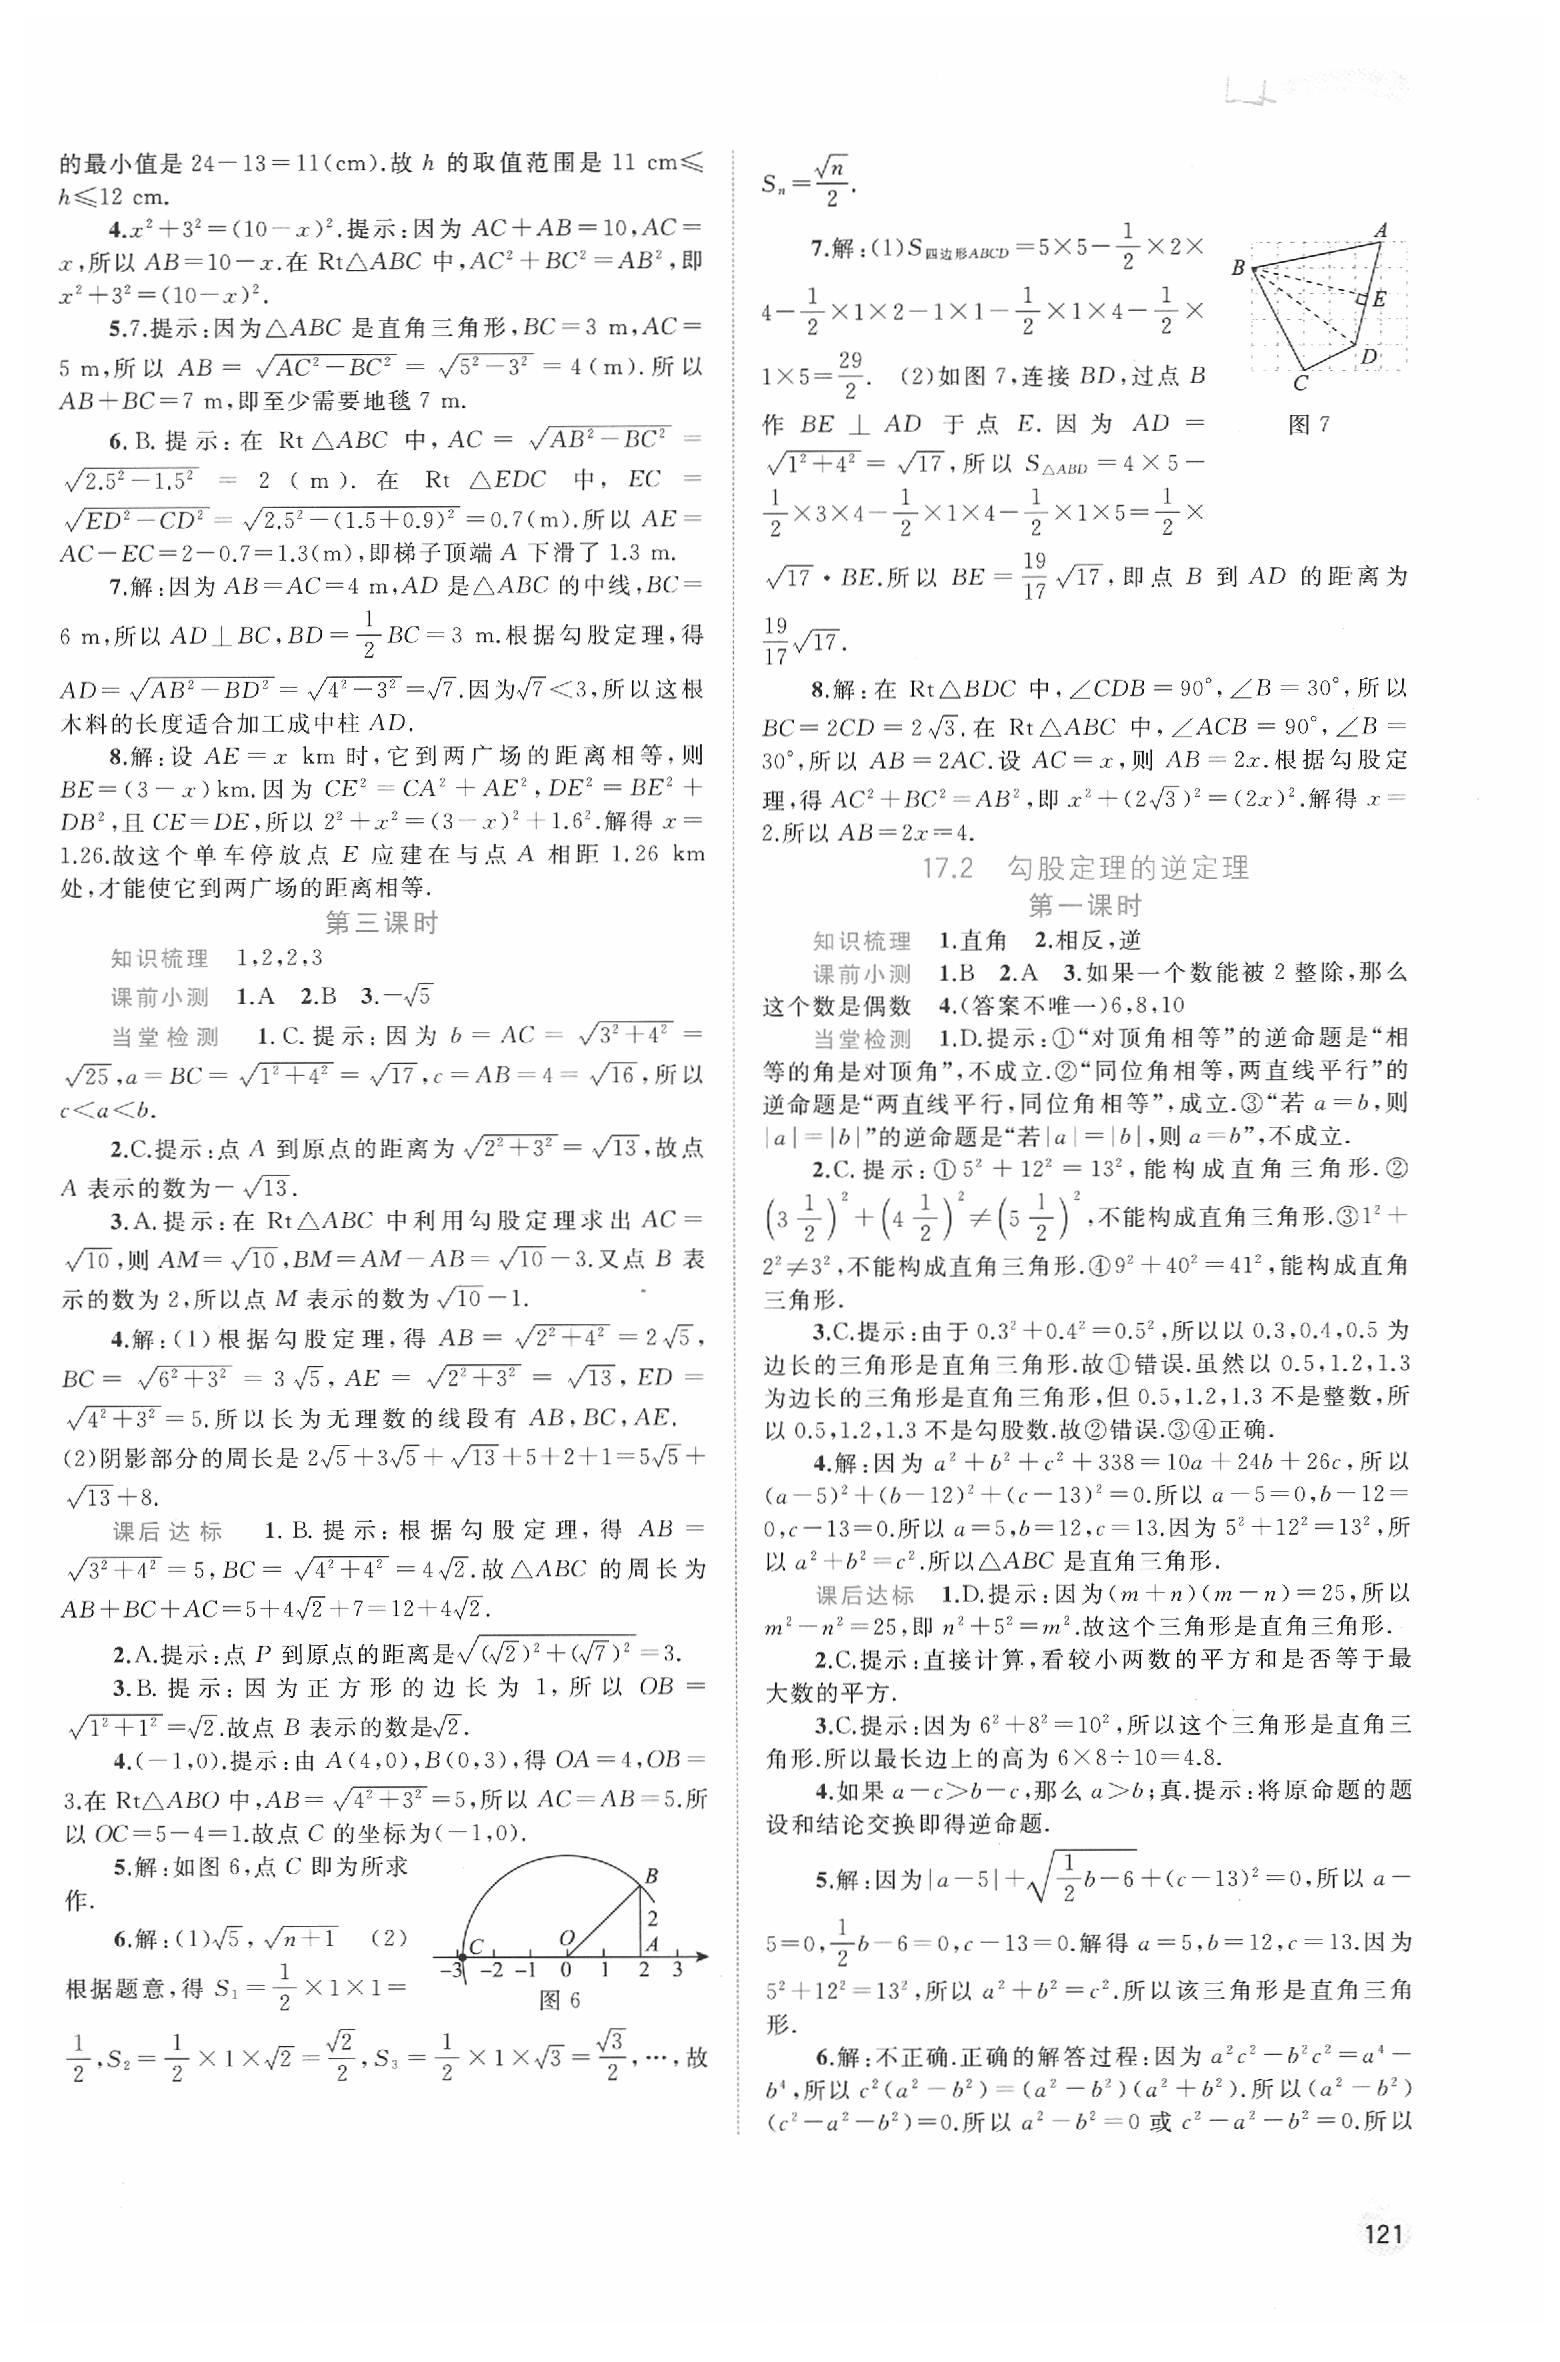 的最小值是 24－13＝11(cm).故 h 的取值范围是 11 cm≤
h≤12 cm.
4.x²＋3²＝(10－x)².提示:因为 AC＋AB＝10,AC＝
x,所以 AB＝10－x.在 Rt△ABC 中,AC²＋BC²＝AB²,即
x²＋3²＝(10－x)².
5.7.提示:因为△ABC 是直角三角形,BC＝3 m,AC＝
5 m,所以 AB＝√(AC²－BC²)＝√(5²－3²)＝4(m).所以
AB＋BC＝7 m,即至少需要地毯 7 m.
6.B.提示:在 Rt△ABC 中,AC＝√(AB²－BC²)＝
√(2.5²－1.5²)＝2(m).在 Rt△EDC 中,EC＝
√(ED²－CD²)＝√(2.5²－(1.5＋0.9)²)＝0.7(m).所以 AE＝
AC－EC＝2－0.7＝1.3(m),即梯子顶端 A 下滑了 1.3 m.
7.解:因为 AB＝AC＝4 m,AD 是△ABC 的中线,BC＝
6 m,所以 AD⊥BC,BD＝1/2BC＝3 m.根据勾股定理,得
AD＝√(AB²－BD²)＝√(4²－3²)＝√7.因为√7＜3,所以这根
木料的长度适合加工成中柱 AD.
8.解:设 AE＝x km 时,它到两广场的距离相等,则
BE＝(3－x)km.因为 CE²＝CA²＋AE²,DE²＝BE²＋
DB²,且 CE＝DE,所以 2²＋x²＝(3－x)²＋1.6².解得 x＝
1.26.故这个单车停放点 E 应建在与点 A 相距 1.26 km
处,才能使它到两广场的距离相等.
第三课时
知识梳理 1,2,2,3
课前小测 1.A 2.B 3.－√5
当堂检测 1.C.提示:因为 b＝AC＝√(3²＋4²)＝
√25,a＝BC＝√(1²＋4²)＝√17,c＝AB＝4＝√16,所以
c＜a＜b.
2.C.提示:点 A 到原点的距离为√(2²＋3²)＝√13,故点
A 表示的数为－√13.
3.A.提示:在 Rt△ABC 中利用勾股定理求出 AC＝
√10,则 AM＝√10,BM＝AM－AB＝√10－3.又点 B 表
示的数为 2,所以点 M 表示的数为√10－1.
4.解:(1)根据勾股定理,得 AB＝√(2²＋4²)＝2√5,
BC＝√(6²＋3²)＝3√5,AE＝√(2²＋3²)＝√13,ED＝
√(4²＋3²)＝5.所以长为无理数的线段有 AB,BC,AE.
(2)阴影部分的周长是 2√5＋3√5＋√13＋5＋2＋1＝5√5＋
√13＋8.
课后达标 1.B.提示:根据勾股定理,得 AB＝
√(3²＋4²)＝5,BC＝√(4²＋4²)＝4√2.故△ABC 的周长为
AB＋BC＋AC＝5＋4√2＋7＝12＋4√2.
2.A.提示:点 P 到原点的距离是√((√2)²＋(√7)²)＝3.
3.B.提示:因为正方形的边长为 1,所以 OB＝
√(1²＋1²)＝√2.故点 B 表示的数是√2.
4.(－1,0).提示:由 A(4,0),B(0,3),得 OA＝4,OB＝
3.在 Rt△ABO 中,AB＝√(4²＋3²)＝5,所以 AC＝AB＝5.所
以 OC＝5－4＝1.故点 C 的坐标为(－1,0).
5.解:如图 6,点 C 即为所求
作.
6.解:(1)√5,√(n＋1) (2)
根据题意,得 S₁＝1/2×1×1＝
B
2
C O A
－3 －2 －1 0 1 2 3
图 6
1/2,S₂＝1/2×1×√2＝√2/2,S₃＝1/2×1×√3＝√3/2,…,故
Sₙ＝√n/2.
7.解:(1)S四边形ABCD＝5×5－1/2×2×
4－1/2×1×2－1×1－1/2×1×4－1/2×
1×5＝29/2. (2)如图 7,连接 BD,过点 B
作 BE⊥AD 于点 E.因为 AD＝
√(1²＋4²)＝√17,所以 S△ABD＝4×5－
1/2×3×4－1/2×1×4－1/2×1×5＝1/2×
A
B
E
D
C
图 7
√17·BE.所以 BE＝19/17√17,即点 B 到 AD 的距离为
19/17√17.
8.解:在 Rt△BDC 中,∠CDB＝90°,∠B＝30°,所以
BC＝2CD＝2√3.在 Rt△ABC 中,∠ACB＝90°,∠B＝
30°,所以 AB＝2AC.设 AC＝x,则 AB＝2x.根据勾股定
理,得 AC²＋BC²＝AB²,即 x²＋(2√3)²＝(2x)².解得 x＝
2.所以 AB＝2x＝4.
17.2 勾股定理的逆定理
第一课时
知识梳理 1.直角 2.相反,逆
课前小测 1.B 2.A 3.如果一个数能被 2 整除,那么
这个数是偶数 4.(答案不唯一)6,8,10
当堂检测 1.D.提示:①“对顶角相等”的逆命题是“相
等的角是对顶角”,不成立.②“同位角相等,两直线平行”的
逆命题是“两直线平行,同位角相等”,成立.③“若 a＝b,则
|a|＝|b|”的逆命题是“若|a|＝|b|,则 a＝b”,不成立.
2.C.提示:①5²＋12²＝13²,能构成直角三角形.②
(3 1/2)²＋(4 1/2)²≠(5 1/2)²,不能构成直角三角形.③1²＋
2²≠3²,不能构成直角三角形.④9²＋40²＝41²,能构成直角
三角形.
3.C.提示:由于 0.3²＋0.4²＝0.5²,所以以 0.3,0.4,0.5 为
边长的三角形是直角三角形.故①错误.虽然以 0.5,1.2,1.3
为边长的三角形是直角三角形,但 0.5,1.2,1.3 不是整数,所
以 0.5,1.2,1.3 不是勾股数.故②错误.③④正确.
4.解:因为 a²＋b²＋c²＋338＝10a＋24b＋26c,所以
(a－5)²＋(b－12)²＋(c－13)²＝0.所以 a－5＝0,b－12＝
0,c－13＝0.所以 a＝5,b＝12,c＝13.因为 5²＋12²＝13²,所
以 a²＋b²＝c².所以△ABC 是直角三角形.
课后达标 1.D.提示:因为(m＋n)(m－n)＝25,所以
m²－n²＝25,即 n²＋5²＝m².故这个三角形是直角三角形.
2.C.提示:直接计算,看较小两数的平方和是否等于最
大数的平方.
3.C.提示:因为 6²＋8²＝10²,所以这个三角形是直角三
角形.所以最长边上的高为 6×8÷10＝4.8.
4.如果 a－c＞b－c,那么 a＞b;真.提示:将原命题的题
设和结论交换即得逆命题.
5.解:因为|a－5|＋√(1/2b－6)＋(c－13)²＝0,所以 a－
5＝0,1/2b－6＝0,c－13＝0.解得 a＝5,b＝12,c＝13.因为
5²＋12²＝13²,所以 a²＋b²＝c².所以该三角形是直角三角
形.
6.解:不正确.正确的解答过程:因为 a²c²－b²c²＝a⁴－
b⁴,所以 c²(a²－b²)＝(a²－b²)(a²＋b²).所以(a²－b²)
(c²－a²－b²)＝0.所以 a²－b²＝0 或 c²－a²－b²＝0.所以
121